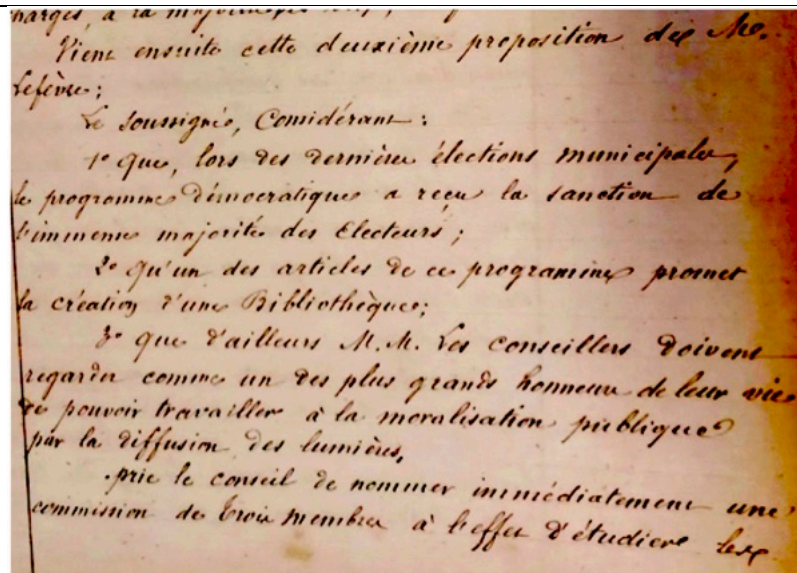 charges, à la
Vient ensuite cette deuxième proposition de M.
Lefèvre :
Le soussigné, Considérant :
1º que, lors des dernières élections municipales,
le programme démocratique a reçu la sanction de
l'immense majorité des Electeurs ;
2º qu'un des articles de ce programme promet
la création d'une Bibliothèque ;
3º que d'ailleurs M. M. Les conseillers doivent
regarder comme un des plus grands honneurs de leur vie
de pouvoir travailler à la moralisation publique
par la diffusion des lumières,
prie le conseil de nommer immédiatement une
commission de trois membres à l'effet d'étudier les